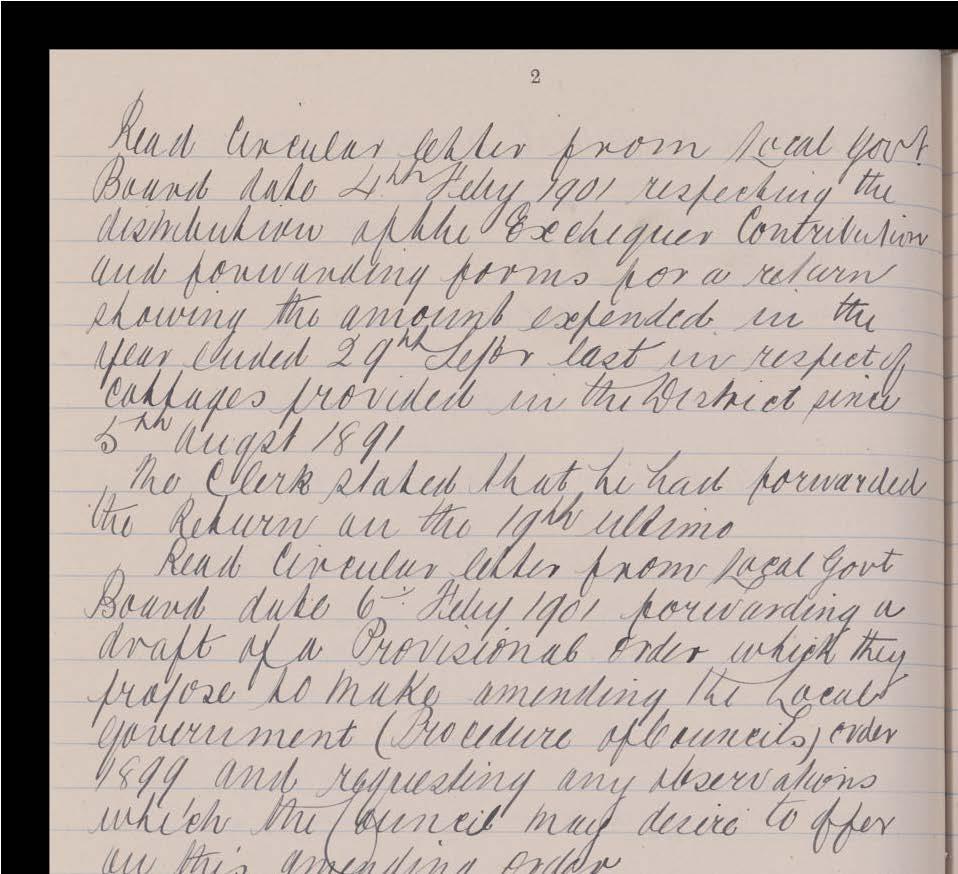 2
Read Circular letter from Local Govt
Board date 4th Feby 1901 respecting the
distribution of the Exchequer Contribution
and forwarding forms for a return
showing the amount expended in the
year ended 29th Septr last in respect of
cottages provided in the District since
5th Augst 1891
The Clerk stated that he had forwarded
the Return on the 19th ultimo
Read Circular letter from Local Govt
Board date 6th Feby 1901 forwarding a
draft of a Provisional order which they
propose to make amending the Local
Government (Procedure of Councils) order
1899 and requesting any observations
which the Council may desire to offer
on this amending order